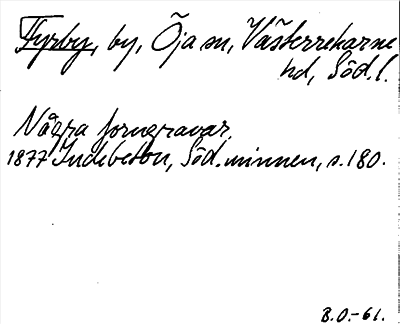 Fyrby, by, Öja sn, Västerrekarne
hd, Söd. l.
Några forngravar.
1877 Indebetou, Söd. minnen, s. 180.
B.O.-61.